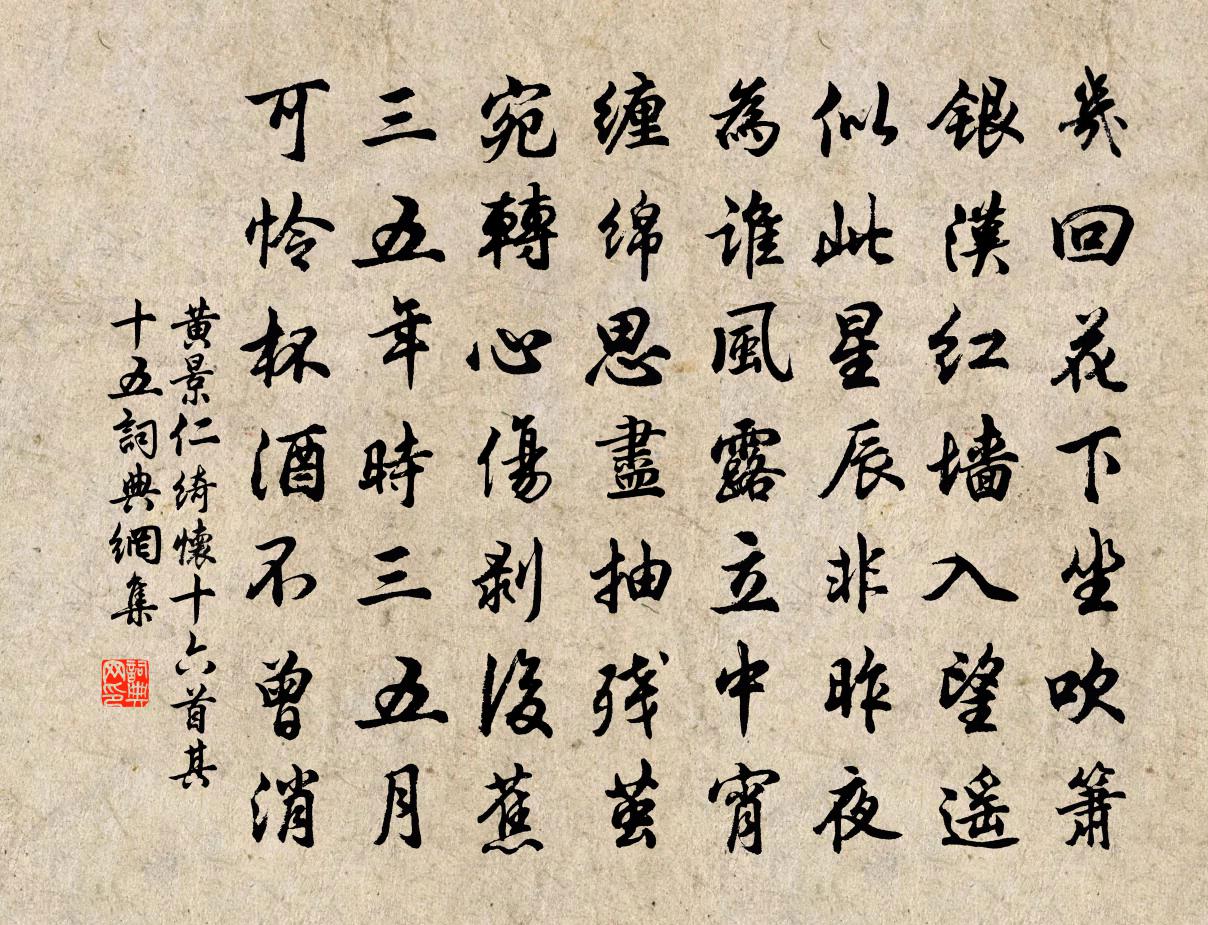 幾回花下坐吹簫
銀漢紅墻入望遙
似此星辰非昨夜
為誰風露立中宵
纏綿思盡抽殘繭
宛轉心傷剝後蕉
三五年時三五月
可憐杯酒不曾消
黃景仁綺懷十六首其
十五詞典網集
詞典
网印